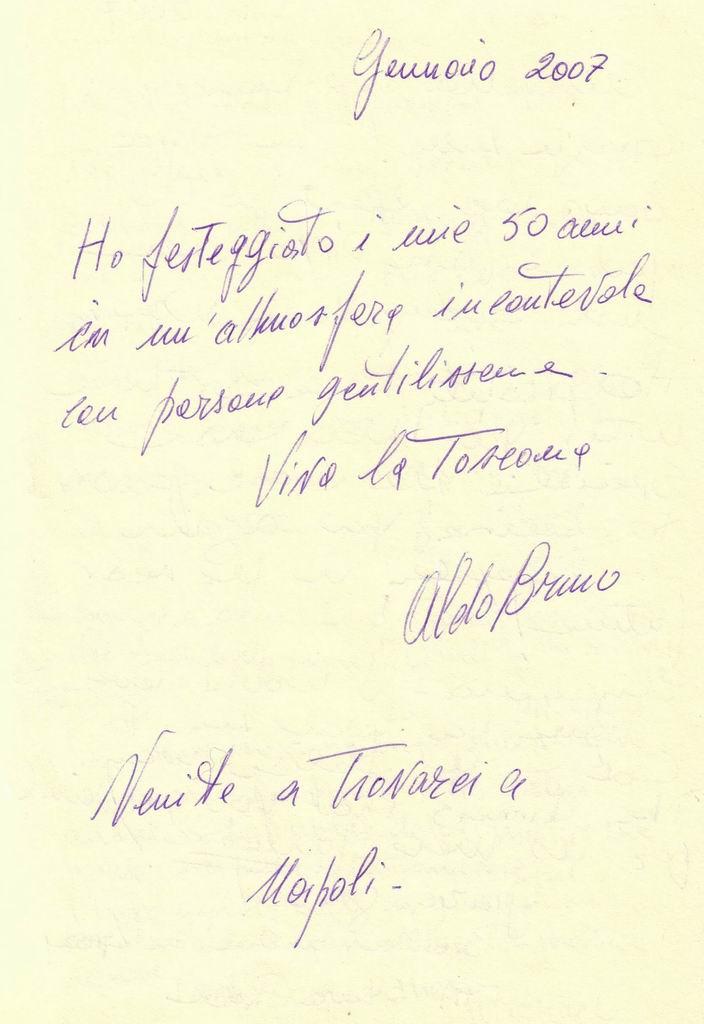 Gennaio 2007
Ho festeggiato i mie 50 anni
in un'atmosfera incantevole
con persone gentilissime.
Viva la Toscana
Aldo Bruno
Venite a Trovarci a
Napoli-